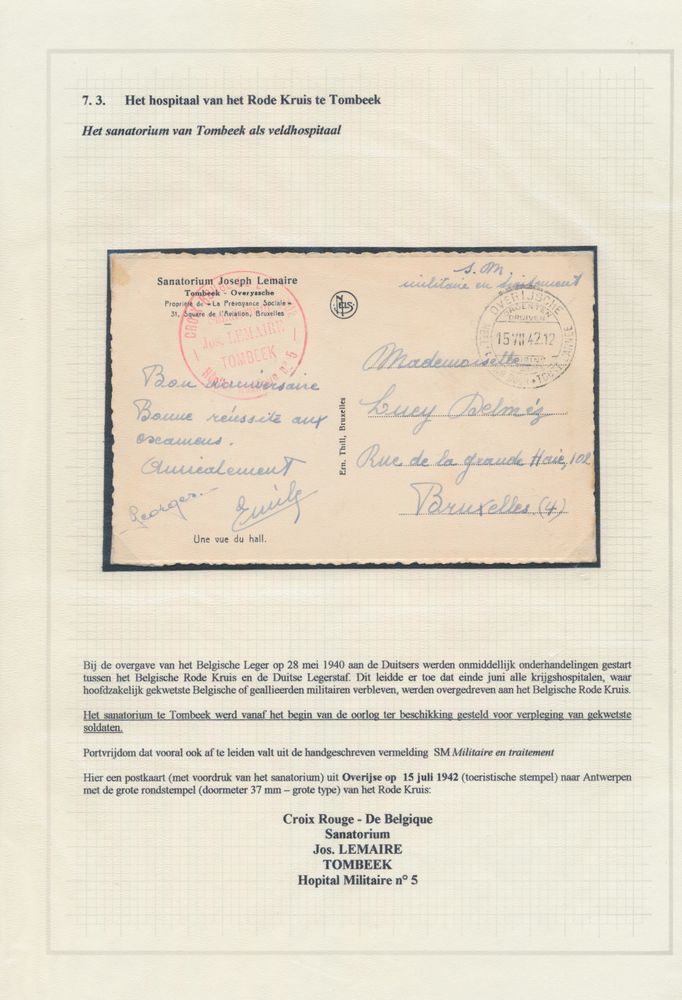 7. 3. Het hospitaal van het Rode Kruis te Tombeek
Het sanatorium van Tombeek als veldhospitaal
Sanatorium Joseph Lemaire
Tombeek - Overyssche
Propriété de « La Prévoyance Sociale »
31, Square de l'Aviation, Bruxelles
Jos. LEMAIRE
TOMBEEK
N° 5
NELS
S. M.
militaire en traitement
OVERIJSCHE
GROENTEN
DRUIVEN
15 VII 42.12
Bon anniversaire
Bonne réussite aux
examens.
Amicalement
Georges.
Emile
Une vue du hall.
Ern. Thill, Bruxelles
Mademoiselle
Lucy Delméz
Rue de la grande Haie, 102
Bruxelles (4)
Bij de overgave van het Belgische Leger op 28 mei 1940 aan de Duitsers werden onmiddellijk onderhandelingen gestart
tussen het Belgische Rode Kruis en de Duitse Legerstaf. Dit leidde er toe dat einde juni alle krijgshospitalen, waar
hoofdzakelijk gekwetste Belgische of geallieerden militairen verbleven, werden overgedreven aan het Belgische Rode Kruis.
Het sanatorium te Tombeek werd vanaf het begin van de oorlog ter beschikking gesteld voor verpleging van gekwetste
soldaten.
Portvrijdom dat vooral ook af te leiden valt uit de handgeschreven vermelding SM Militaire en traitement
Hier een postkaart (met voordruk van het sanatorium) uit Overijse op 15 juli 1942 (toeristische stempel) naar Antwerpen
met de grote rondstempel (doormeter 37 mm – grote type) van het Rode Kruis:
Croix Rouge - De Belgique
Sanatorium
Jos. LEMAIRE
TOMBEEK
Hopital Militaire n° 5